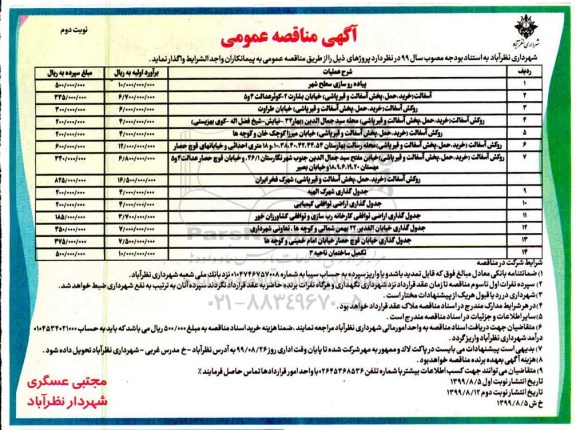 آگهی مناقصه عمومی
نوبت دوم
شهرداری نظرآباد
شهرداری نظرآباد به استناد بودجه مصوب سال ۹۹ در نظر دارد پروژهای ذیل را از طریق مناقصه عمومی به پیمانکاران واجد الشرایط واگذار نماید.
ردیف شرح عملیات برآورد اولیه به ریال مبلغ سپرده به ریال
۱ پیاده رو سازی سطح شهر ۱۰/۰۰۰/۰۰۰/۰۰۰ ۵۰۰/۰۰۰/۰۰۰
۲ آسفالت (خرید.حمل.پخش آسفالت و قیرپاشی) خیابان بشارت ۲-کوثر عدالت ۴ و ۵ ۶/۷۰۰/۰۰۰/۰۰۰ ۳۳۵/۰۰۰/۰۰۰
۳ روکش آسفالت (خرید.حمل.پخش آسفالت و قیرپاشی) خیابان طراوت ۶/۰۰۰/۰۰۰/۰۰۰ ۳۰۰/۰۰۰/۰۰۰
۴ روکش آسفالت (خرید.حمل.پخش آسفالت و قیرپاشی) محله سید جمال الدین (بهار ۳۳ -نیایش-شیخ فضل اله -کوی بهزیستی) ۴/۰۰۰/۰۰۰/۰۰۰ ۲۰۰/۰۰۰/۰۰۰
۵ روکش آسفالت (خرید.حمل.پخش آسفالت و قیرپاشی) خیابان میرزا کوچک خان و کوچه ها ۴/۰۰۰/۰۰۰/۰۰۰ ۲۰۰/۰۰۰/۰۰۰
۶ روکش آسفالت (خرید.حمل.پخش آسفالت و قیرپاشی) محله رسالت بهارستان و ۱۸ متری احداثی و خیابانهای قوچ حصار ۱۲/۰۰۰/۰۰۰/۰۰۰ ۶۰۰/۰۰۰/۰۰۰
۷ روکش آسفالت (خرید.حمل.پخش آسفالت و قیرپاشی) خیابن مفتح سید جمال الدین جنوب شهر نگارستان ۴۶/۱ .و خیابان قوچ حصار عدالت ۴ و ۵ ۶/۸۰۰/۰۰۰/۰۰۰ ۳۴۰/۰۰۰/۰۰۰
مهستان و خیابان بصیر
۸ روکش آسفالت (خرید.حمل.پخش آسفالت و قیرپاشی) شهرک فخر ایران ۱۶/۵۰۰/۰۰۰/۰۰۰ ۸۲۵/۰۰۰/۰۰۰
۹ جدول گذاری شهرک الهیه ۴/۰۰۰/۰۰۰/۰۰۰ ۲۰۰/۰۰۰/۰۰۰
۱۰ جدول گذاری اراضی توافقی کیمیایی ۴/۰۰۰/۰۰۰/۰۰۰ ۲۰۰/۰۰۰/۰۰۰
۱۱ جدول گذاری اراضی توافقی کارخانه رب سازی و توافقی کشاورزان خور ۳/۷۰۰/۰۰۰/۰۰۰ ۱۸۵/۰۰۰/۰۰۰
۱۲ جدول گذاری خیابان الغدیر. ۲۲ بهمن شمالی و کوچه ها . تعاونی شهرداری ۷/۰۰۰/۰۰۰/۰۰۰ ۳۵۰/۰۰۰/۰۰۰
۱۳ جدول گذاری خیابان قوچ حصار خیابان امام خمینی و کوچه ها ۷/۵۰۰/۰۰۰/۰۰۰ ۳۷۵/۰۰۰/۰۰۰
۱۴ تکمیل ساختمان ناحیه ۳ ۱۰/۰۰۰/۰۰۰/۰۰۰ ۵۰۰/۰۰۰/۰۰۰
شرایط شرکت در مناقصه
۱) ضمانتنامه بانکی معادل مبالغ فوق که قابل تمدید باشد و یا واریز سپرده به حساب سیبا به شماره ۰۱۰۴۷۴۶۷۵۷۰۰۸ نزد بانک ملی شعبه شهرداری نظرآباد.
۲) سپرده نفرات اول تا سوم مناقصه تا زمان عقد قرارداد نزد شهرداری نگهداری و هرگاه نفرات برنده حاضر به عقد قرارداد نگردند سپرده آنان به ترتیب به نفع شهرداری ضبط خواهد شد.
۳) شهرداری در رد یا قبول هر یک از پیشنهادات مختار است.
۴) در هر شرایط مدارک مندرج در اسناد مناقصه ملاک عقد قرارداد خواهد بود.
۵) سایر اطلاعات و جزئیات در اسناد مناقصه مندرج است.
۶) متقاضیان جهت دریافت اسناد مناقصه به واحد امور مالی شهرداری مراجعه نمایند .ضمنا هزینه خرید اسناد مناقصه به مبلغ ۵۰۰/۰۰۰ ریال می باشد که باید به حساب ۰۱۰۴۵۳۴۰۳۱۰۰۰
درآمد شهرداری نظرآباد واریز گردد.
۷) بدیهی است پیشنهادات می بایست در پاکت لاک و ممهور به مهر شرکت شده تا پایان وقت اداری روز ۹۹/۰۸/۲۶ به آدرس نظرآباد -خ مدرس غربی - شهرداری نظرآباد تحویل داده شود.
۸) هزینه آگهی بعهده برنده مناقصه خواهد بود.
۹) متقاضیان می توانند جهت کسب اطلاعات بیشتر با شماره تلفن ۰۲۶۴۵۳۶۸۵۳۶ با واحد امور قراردادها تماس حاصل فرمایند
تاریخ انتشار نوبت اول ۱۳۹۹/۸/۵
تاریخ انتشار نوبت دوم ۱۳۹۹/۸/۱۲
خ ش ۱۳۹۹/۸/۵
مجتبی عسگری
شهردار نظرآباد
۰۲۱-۸۸۳۴۹۶۷۰-۵